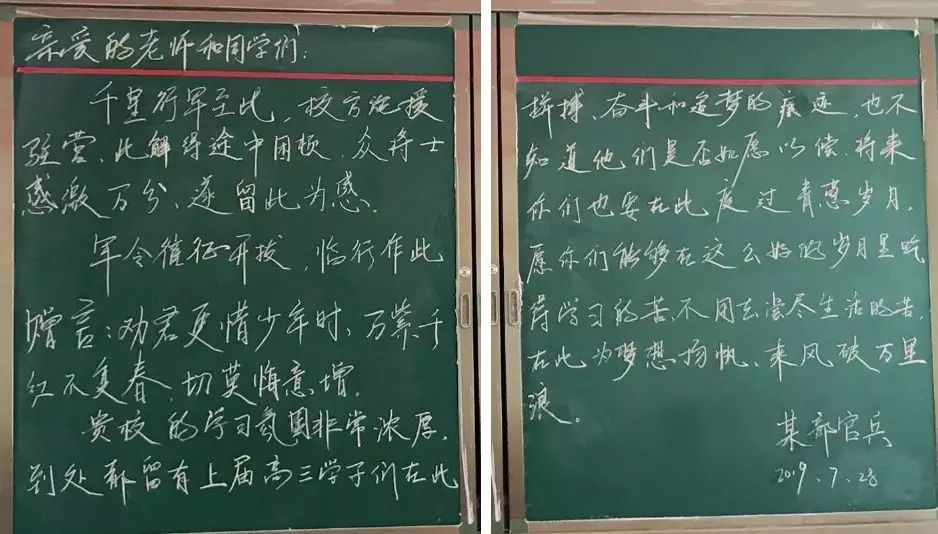 亲爱的老师和同学们:
千里行军至此,校方施援
驻营,此解得途中困顿,众将士
感激万分、遂留此为感.
军令值征开拔,临行作此
赠言:劝君更惜少年时、万紫千
红不复春,切莫悔意增.
贵校的学习氛围非常浓厚,
到处都留有上届高三学子们在此
拼搏、奋斗和追梦的痕迹,也不
知道他们是否如愿以偿.将来
你们也要在此度过青葱岁月,
愿你们能够在这么好的岁月里吃
得学习的苦.不用去尝尽生活的苦.
在此为梦想扬帆、乘风破万里
浪。
某部官兵
2019.7.28